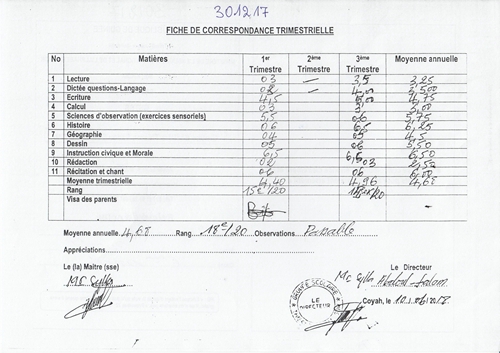 301217
FICHE DE CORRESPONDANCE TRIMESTRIELLE
No Matières 1er Trimestre 2ème Trimestre 3ème Trimestre Moyenne annuelle
1 Lecture 03 — 3,5 3,25
2 Dictée questions-Langage — 4,00
3 Ecriture 4,5 5,00 4,75
4 Calcul 03
5 Sciences d'observation (exercices sensoriels) 5,5 06 5,75
6 Histoire 06 6,5 6,25
7 Géographie 04 05 4,5
8 Dessin 05 06 5,50
9 Instruction civique et Morale 6,5 6,5 6,50
10 Rédaction 02 03 2,50
11 Récitation et chant 06 06 6,00
Moyenne trimestrielle 4,40 4,96 4,68
Rang 15e/20
Visa des parents
Moyenne annuelle 4,68 Rang 18e/20 Observations Passable
Appréciations
Le (la) Maitre (sse) Le Directeur
Mc Sylla Mc Sylla
GROUPE SCOLAIRE
LE DIRECTEUR
Coyah, le 10/06/2018